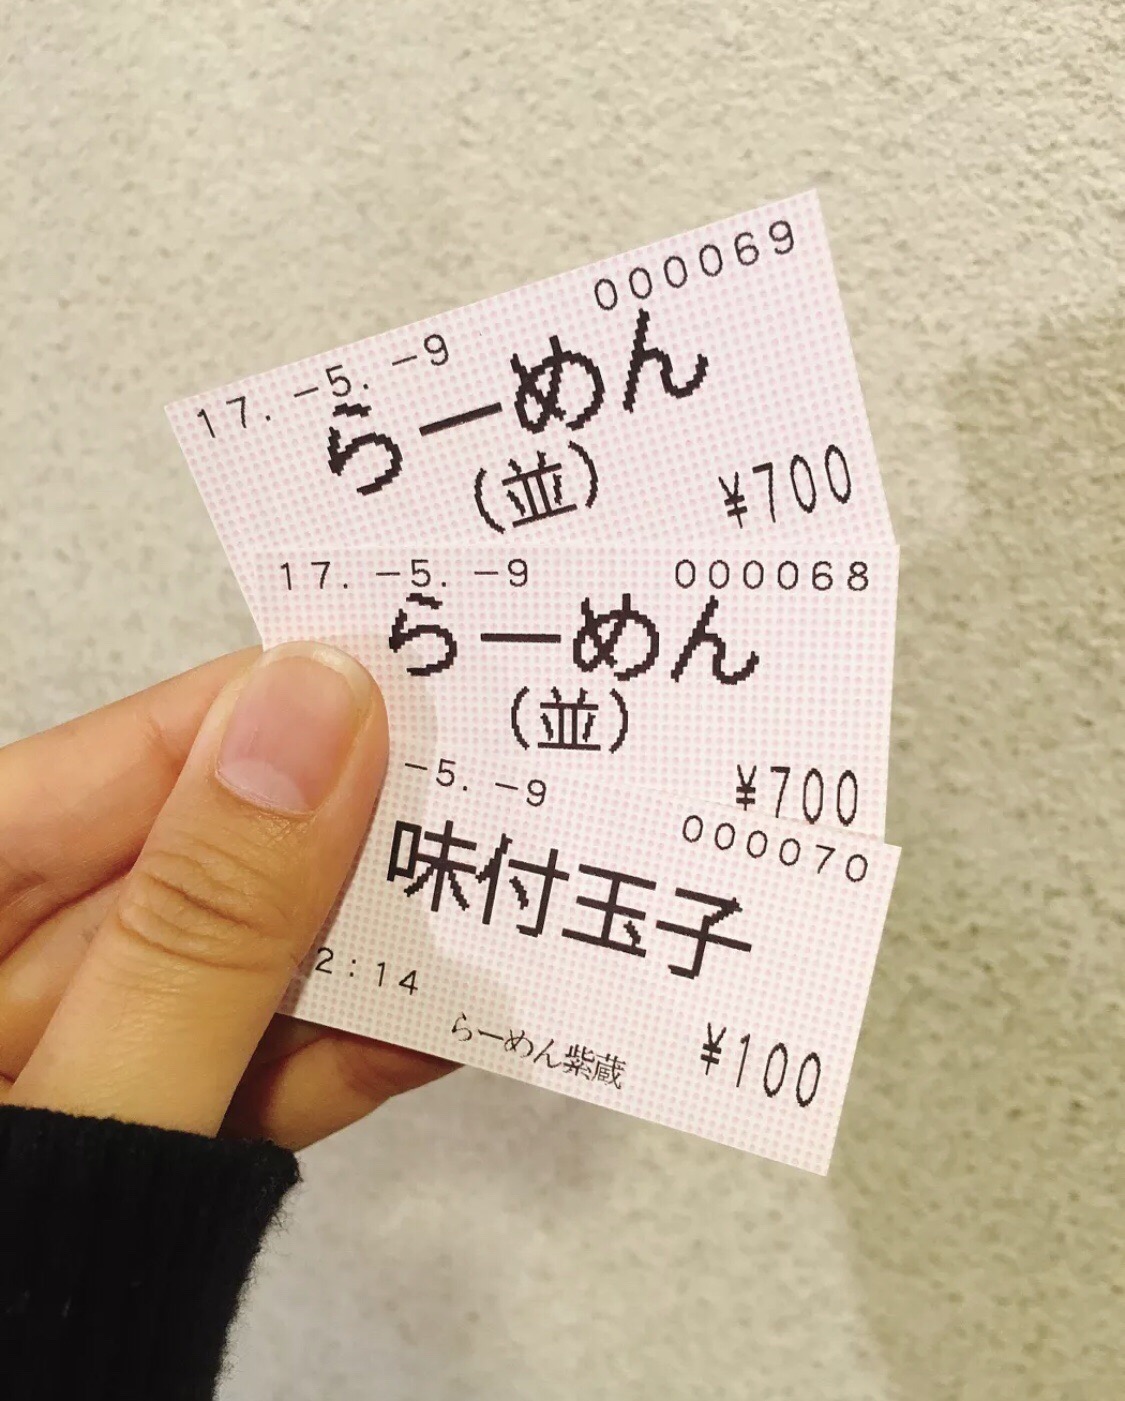 17. -5. -9 000069
らーめん
(並)
¥700
17. -5. -9 000068
らーめん
(並)
¥700
-5. -9 000070
味付玉子
2:14
らーめん紫蔵 ¥100